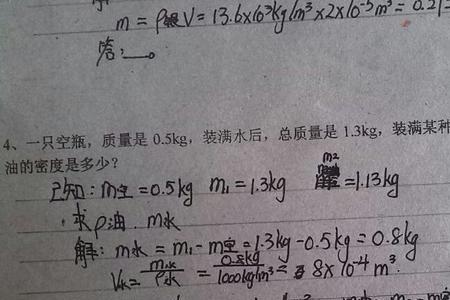 m = ρ银V = 13.6x10³kg/m³x2x10⁻⁵m³ = 0.2
答:
4、一只空瓶，质量是 0.5kg，装满水后，总质量是 1.3kg，装满某种
油的密度是多少？
已知：m空=0.5kg m₁=1.3kg m₂=1.13kg
求ρ油. m水
解：m水 = m₁-m空=1.3kg-0.5kg=0.8kg
V水= m水/ρ水 = 0.8kg/1000kg/m³ = 8x10⁻⁴ m³.